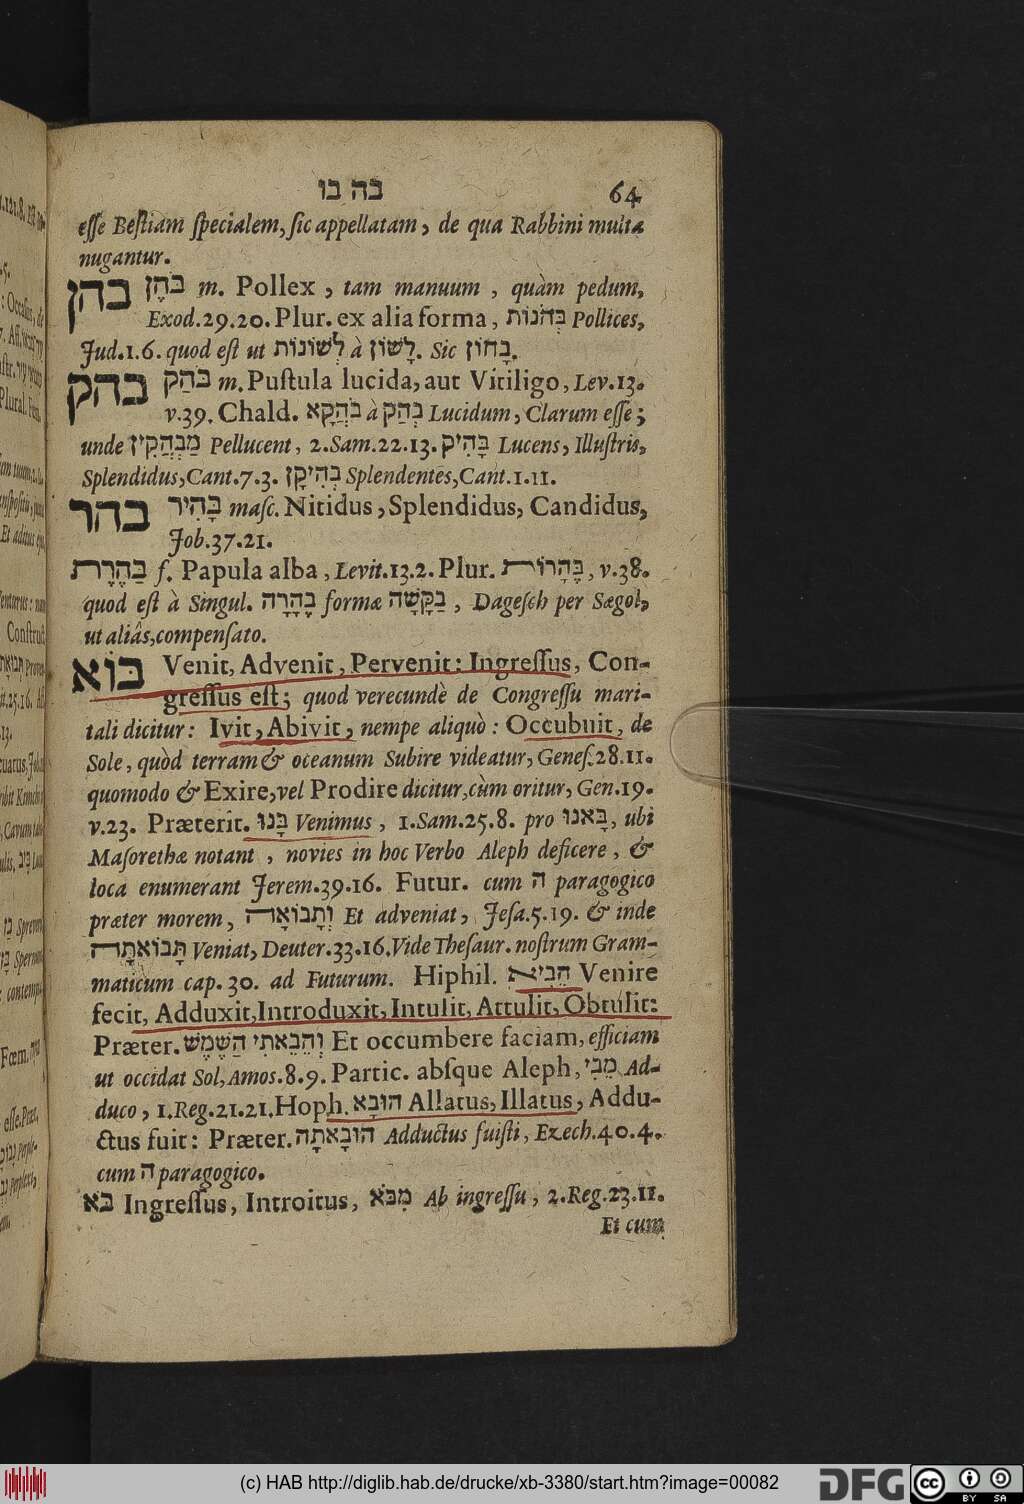 בה בו 64
esse Bestiam specialem, sic appellatam, de qua Rabbini multa
nugantur.
בהן בֹּהֶן m. Pollex, tam manuum, quàm pedum,
Exod.29.20. Plur. ex alia forma, בְּהֹנוֹת Pollices,
Jud.1.6. quod est ut לְשׁוֹנוֹת à לָשׁוֹן. Sic בָּחוֹן.
בהק בֹּהַק m. Pustula lucida, aut Vitiligo, Lev.13.
v.39. Chald. בֹּהֲקָא à בְּהַק Lucidum, Clarum esse;
unde מַבְהֲקִין Pellucent, 2.Sam.22.13. בָּהִיק Lucens, Illustris,
Splendidus, Cant.7.3. בְּהִיקָן Splendentes, Cant.1.11.
בהר בָּהִיר masc. Nitidus, Splendidus, Candidus,
Job.37.21.
בַּהֶרֶת f. Papula alba, Levit.13.2. Plur. בֶּהָרוֹת, v.38.
quod est à Singul. בֶּהָרָה formæ בַּקָּשָׁה, Dagesch per Sægol,
ut aliâs, compensato.
בּוֹא Venit, Advenit, Pervenit: Ingressus, Con-
gressus est; quod verecundè de Congressu mari-
tali dicitur: Ivit, Abivit, nempe aliquò: Occubuit, de
Sole, quòd terram & oceanum Subire videatur, Genes.28.11.
quomodo & Exire, vel Prodire dicitur, cùm oritur, Gen.19.
v.23. Præterit. בָּנוּ Venimus, 1.Sam.25.8. pro בָּאנוּ, ubi
Masorethæ notant, novies in hoc Verbo Aleph deficere, &
loca enumerant Jerem.39.16. Futur. cum ה paragogico
præter morem, וְתָבוֹאָה Et adveniat, Jesa.5.19. & inde
תָּבוֹאתָה Veniat, Deuter.33.16. Vide Thesaur. nostrum Gram-
maticum cap. 30. ad Futurum. Hiphil. הֵבִיא Venire
fecit, Adduxit, Introduxit, Intulit, Attulit, Obtulit:
Præter. וְהֵבֵאתִי הַשֶּׁמֶשׁ Et occumbere faciam, efficiam
ut occidat Sol, Amos.8.9. Partic. absque Aleph, מֵבִי Ad-
duco, 1.Reg.21.21. Hoph. הוּבָא Allatus, Illatus, Addu-
ctus fuit: Præter. הוּבָאתָה Adductus fuisti, Ezech.40.4.
cum ה paragogico.
בֹּא Ingressus, Introitus, מִבֹּא Ab ingressu, 2.Reg.23.11.
Et cum
(c) HAB http://diglib.hab.de/drucke/xb-3380/start.htm?image=00082
DFG
cc BY SA